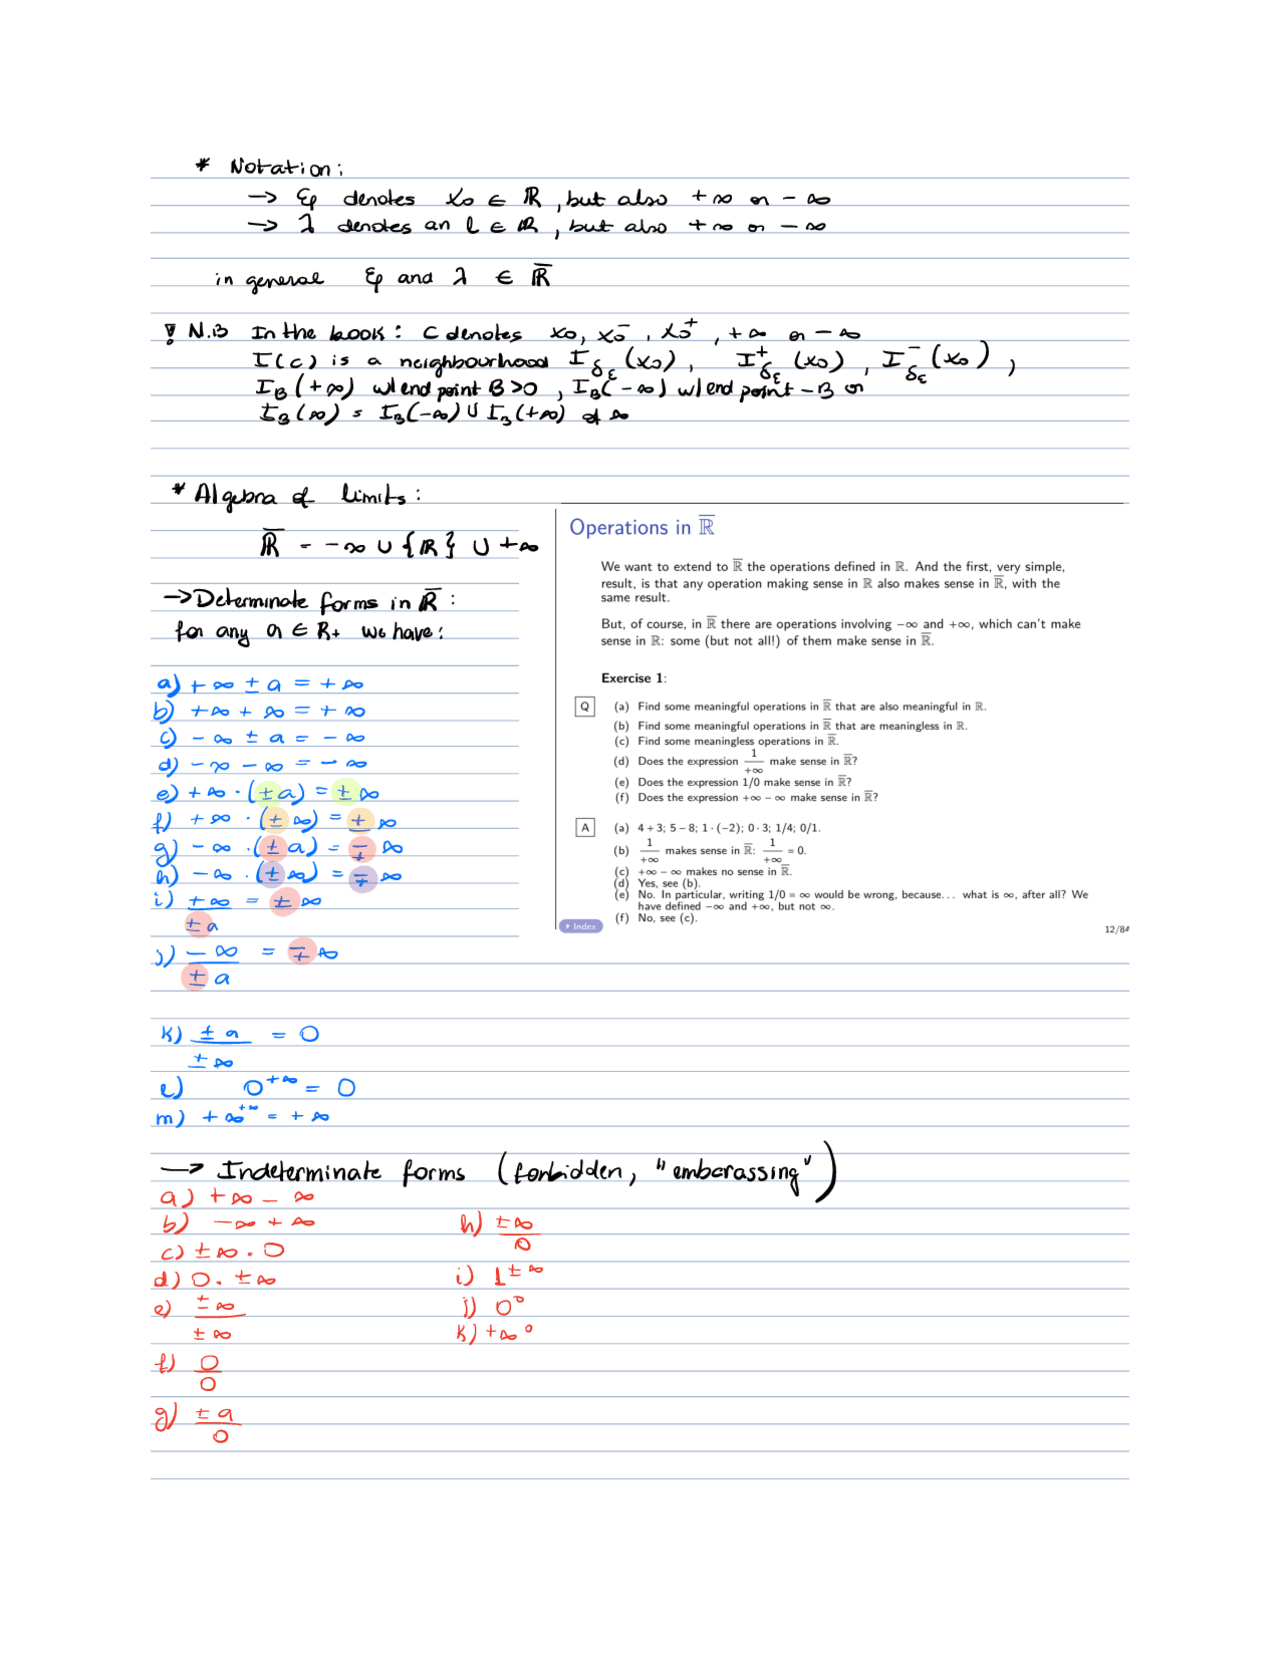 * Notation:
→ ξ denotes x₀ ∈ ℝ, but also +∞ or -∞
→ λ denotes an l ∈ ℝ, but also +∞ or -∞
in general ξ and λ ∈ ℝ̅
! N.B In the book: C denotes x₀, x₀⁻, x₀⁺, +∞ or -∞
I(c) is a neighbourhood I_δε(x₀), I⁺_δε(x₀), I⁻_δε(x₀),
I_B(+∞) w/ end point B>0, I_B(-∞) w/ end point -B or
I_B(∞) = I_B(-∞) ∪ I_B(+∞) of ∞
* Algebra of limits:
ℝ̅ = -∞ ∪ {ℝ} ∪ +∞
→ Determinate forms in ℝ̅:
for any a ∈ R+ we have:
a) +∞ ± a = +∞
b) +∞ + ∞ = +∞
c) -∞ ± a = -∞
d) -∞ - ∞ = -∞
e) +∞ · (±a) = ±∞
f) +∞ · (±∞) = ±∞
g) -∞ · (±a) = ∓∞
h) -∞ · (±∞) = ∓∞
i) ±∞ = ±∞
±a
j) -∞ = ∓∞
±a
k) ±a = 0
±∞
l) 0^+∞ = 0
m) +∞^+∞ = +∞
Operations in ℝ̅
We want to extend to ℝ̅ the operations defined in ℝ. And the first, very simple,
result, is that any operation making sense in ℝ also makes sense in ℝ̅, with the
same result.
But, of course, in ℝ̅ there are operations involving −∞ and +∞, which can't make
sense in ℝ: some (but not all!) of them make sense in ℝ̅.
Exercise 1:
Q (a) Find some meaningful operations in ℝ̅ that are also meaningful in ℝ.
(b) Find some meaningful operations in ℝ̅ that are meaningless in ℝ.
(c) Find some meaningless operations in ℝ̅.
(d) Does the expression 1/+∞ make sense in ℝ̅?
(e) Does the expression 1/0 make sense in ℝ̅?
(f) Does the expression +∞ − ∞ make sense in ℝ̅?
A (a) 4 + 3; 5 − 8; 1 · (−2); 0 · 3; 1/4; 0/1.
(b) 1/+∞ makes sense in ℝ̅: 1/+∞ = 0.
(c) +∞ − ∞ makes no sense in ℝ̅.
(d) Yes, see (b).
(e) No. In particular, writing 1/0 = ∞ would be wrong, because... what is ∞, after all? We
have defined −∞ and +∞, but not ∞.
(f) No, see (c).
Index
12/84
→ Indeterminate forms (forbidden, "embarassing")
a) +∞ - ∞
b) -∞ + ∞
c) ±∞ · 0
d) 0 · ±∞
e) ±∞
±∞
f) 0
0
g) ±a
0
h) ±∞
0
i) 1^±∞
j) 0^0
k) +∞^0